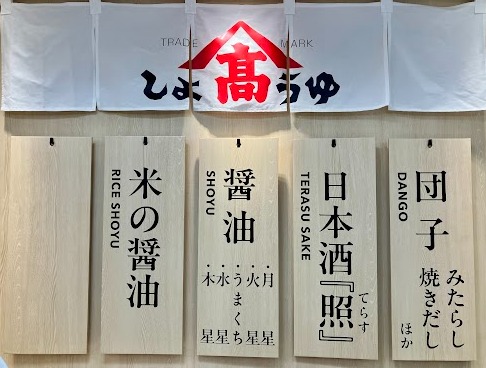 TRADE MARK
しょ髙うゆ
団子
DANGO
みたらし
焼きだし
ほか
日本酒『照』
てらす
TERASU SAKE
醤油
SHOYU
・月星
・火星
・うまくち
・水星
・木星
米の醤油
RICE SHOYU